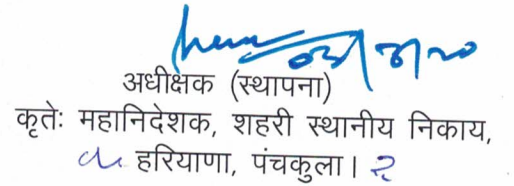 अधीक्षक (स्थापना)
कृतेः महानिदेशक, शहरी स्थानीय निकाय,
हरियाणा, पंचकुला।